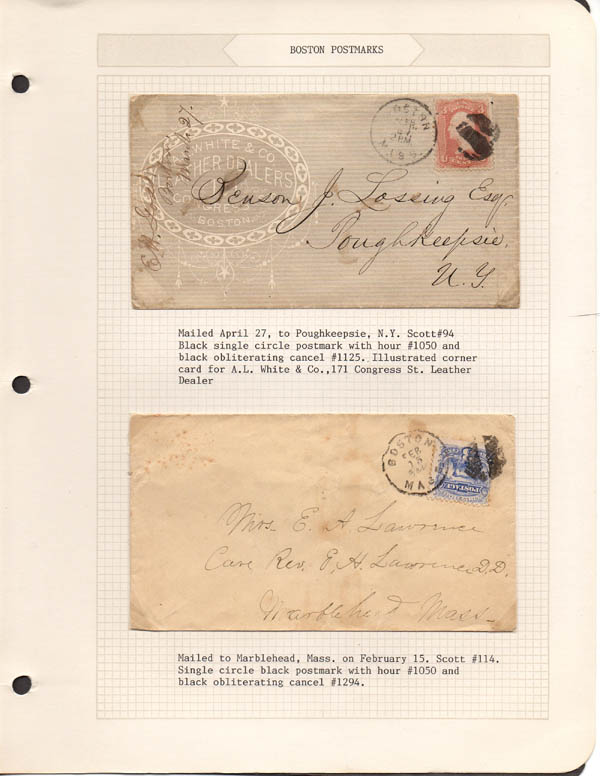 BOSTON POSTMARKS
WHITE & CO
LEATHER DEALERS
CONGRESS
BOSTON
BOSTON
MASS
Benson J. Lossing Esq.
Poughkeepsie,
N.Y.
Mailed April 27, to Poughkeepsie, N.Y. Scott#94
Black single circle postmark with hour #1050 and
black obliterating cancel #1125. Illustrated corner
card for A.L. White & Co.,171 Congress St. Leather
Dealer
BOSTON
FEB
15
MASS
POSTAGE
Mrs. E. A. Lawrence
Care Rev. E. H. Lawrence D.D.
Marblehead Mass.
Mailed to Marblehead, Mass. on February 15. Scott #114.
Single circle black postmark with hour #1050 and
black obliterating cancel #1294.